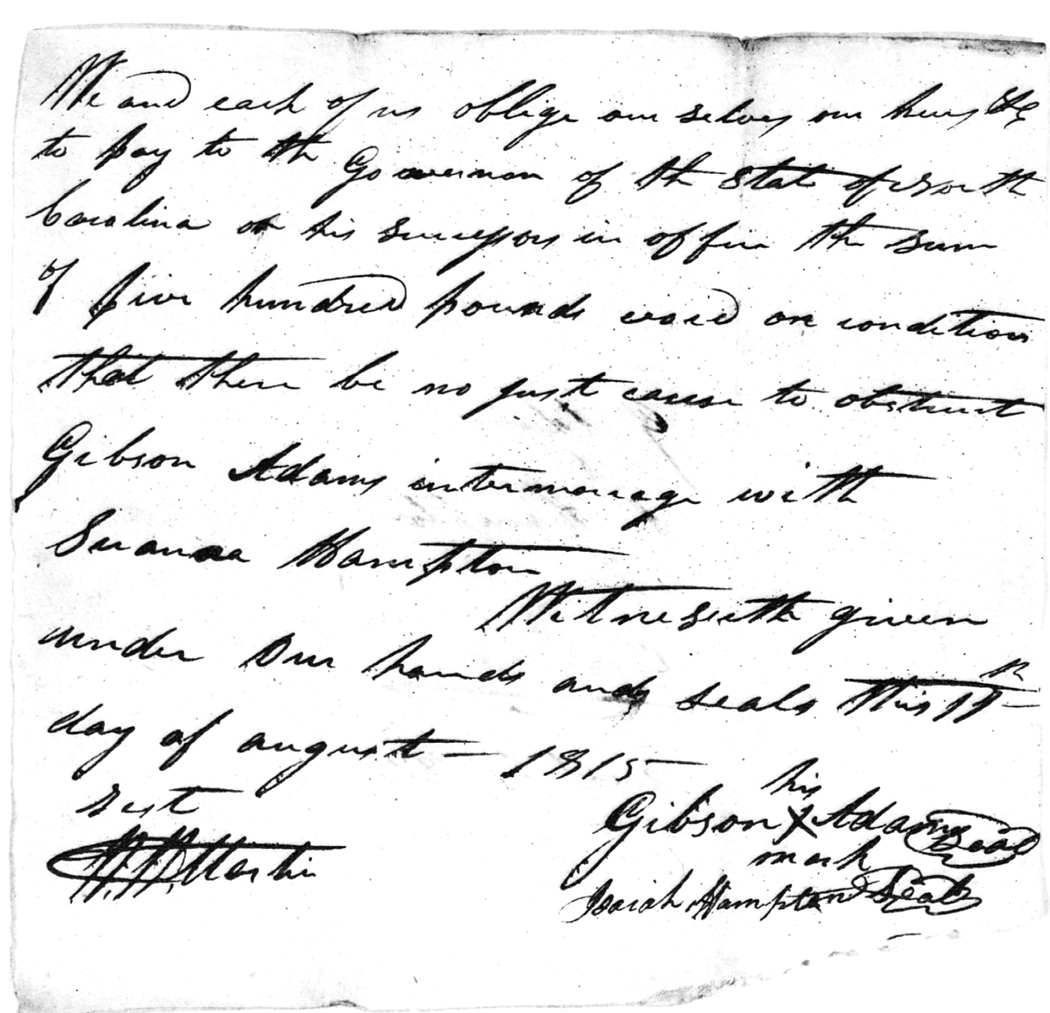 We and each of us oblige our selves our heirs &c
to pay to the Governor of the State of North
Carolina or his successors in office the sum
of five hundred pounds void on condition
that there be no just cause to obstruct
Gibson Adams intermarriage with
Susanna Hampton
Witneseeth given
under Our hands and seals this 11th
day of august - 1815
Test
Martin
his
Gibson X Adams Seal
mark
Isaiah Hampton Seal